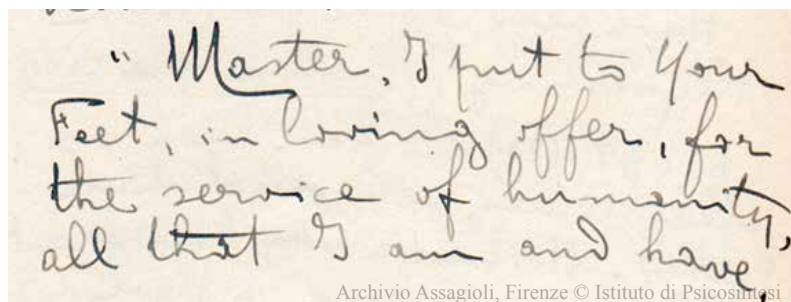 " Master, I put to Your
Feet, in loving offer, for
the service of humanity,
all that I am and have,
Archivio Assagioli, Firenze © Istituto di Psicosintesi